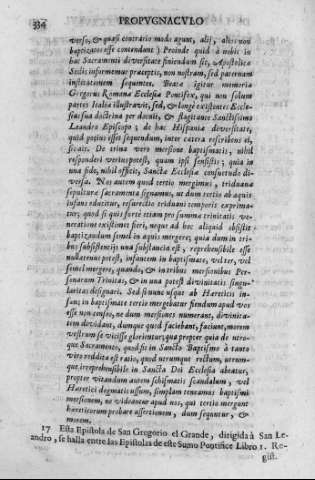 334 PROPVGNACVLO
verso, & quasi contrario modo agunt, alij, alios non
baptizatos esse contendunt) Proinde quid à nobis in
hac Sacramenti diversitate finiendum sit, Apostolicæ
Sedis informemur præceptis, non nostram, sed paternam
institutionem sequimur. Beatæ igitur memoriæ
Gregorius Romanæ Ecclesiæ Pontifex, qui non solum
partes Italiæ illustravit, sed, & longè existentes Eccle-
sias sua doctrina per docuit, & flagitante Sanctissimo
Leandro Episcopo; de hac Hispaniæ diversitate,
quid potius esset sequendum, inter cætera rescribens ei,
sic ait. De trina vero mersione baptismatis, nihil
responderi verius potest, quam ipsi sensistis; quia in
una fide, nihil officit, Sanctæ Ecclesiæ consuetudo di-
versa. Nos autem quod tertio mergimus, triduanæ
sepulturæ sacramenta signamus, ut dum tertio ab aquis
infans educitur, resurrectio triduani temporis exprima-
tur; quod si quis forte etiam pro summæ trinitatis ve-
neratione existimet fieri, neque ad hoc aliquid obsistit
baptizandum semel in aquis mergere; quia dum in tri-
bus subsistentijs una substancia est, reprehensibile esse
nullatenus potest, infantem in baptismate, vel ter, vel
semel mergere, quando, & in tribus mersionibus Per-
sonarum Trinitas, & in una potest divinitatis singu-
laritas designari. Sed si nunc usque ab Hæreticis in-
fans in baptismate tertio mergebatur fiendum apud vos
esse non censeo, ne dum mersiones numerant, divinita-
tem dividant, dumque quod faciebant, faciunt, morem
vestrum se vicisse glorientur, qua propter quia de utro-
que Sacramento, quod sit in Sancto Baptismo à tanto
viro reddita est ratio, quod utrumque rectum, utrum-
que irreprehensibile in Sancta Dei Ecclesia abeatur,
propter vitandum autem schismatis scandalum, vel
Hæretici dogmatis usum, simplam teneamus baptismi
mersionem, ne videantur apud nos, qui tertio mergunt
hæreticorum probare assertionem, dum sequntur, &
morem.
17 Esta Epistola de San Gregorio el Grande, dirigida à San Le-
andro, se halla entre las Epistolas de este Sumo Pontifice Libro 1. Re-
gist.